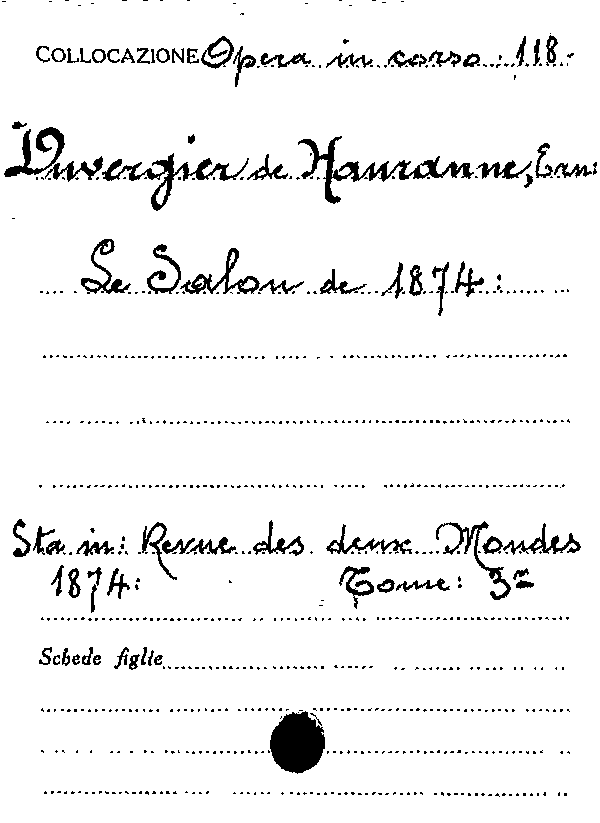 COLLOCAZIONE Opera in corso. 118.
Duvergier de Hauranne, Ern:
Le Salon de 1874:
Sta in: Revue des deux Mondes
1874: Tome: 3m
Schede figlie